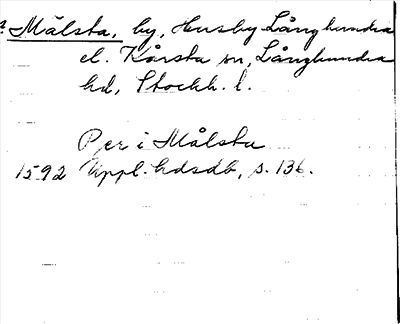 Målsta, by, Husby Långhundra
el. Kårsta sn, Långhundra
hd, Stockh. l.
Per i Målsta
1592 Uppl. hdsdb, s. 136.